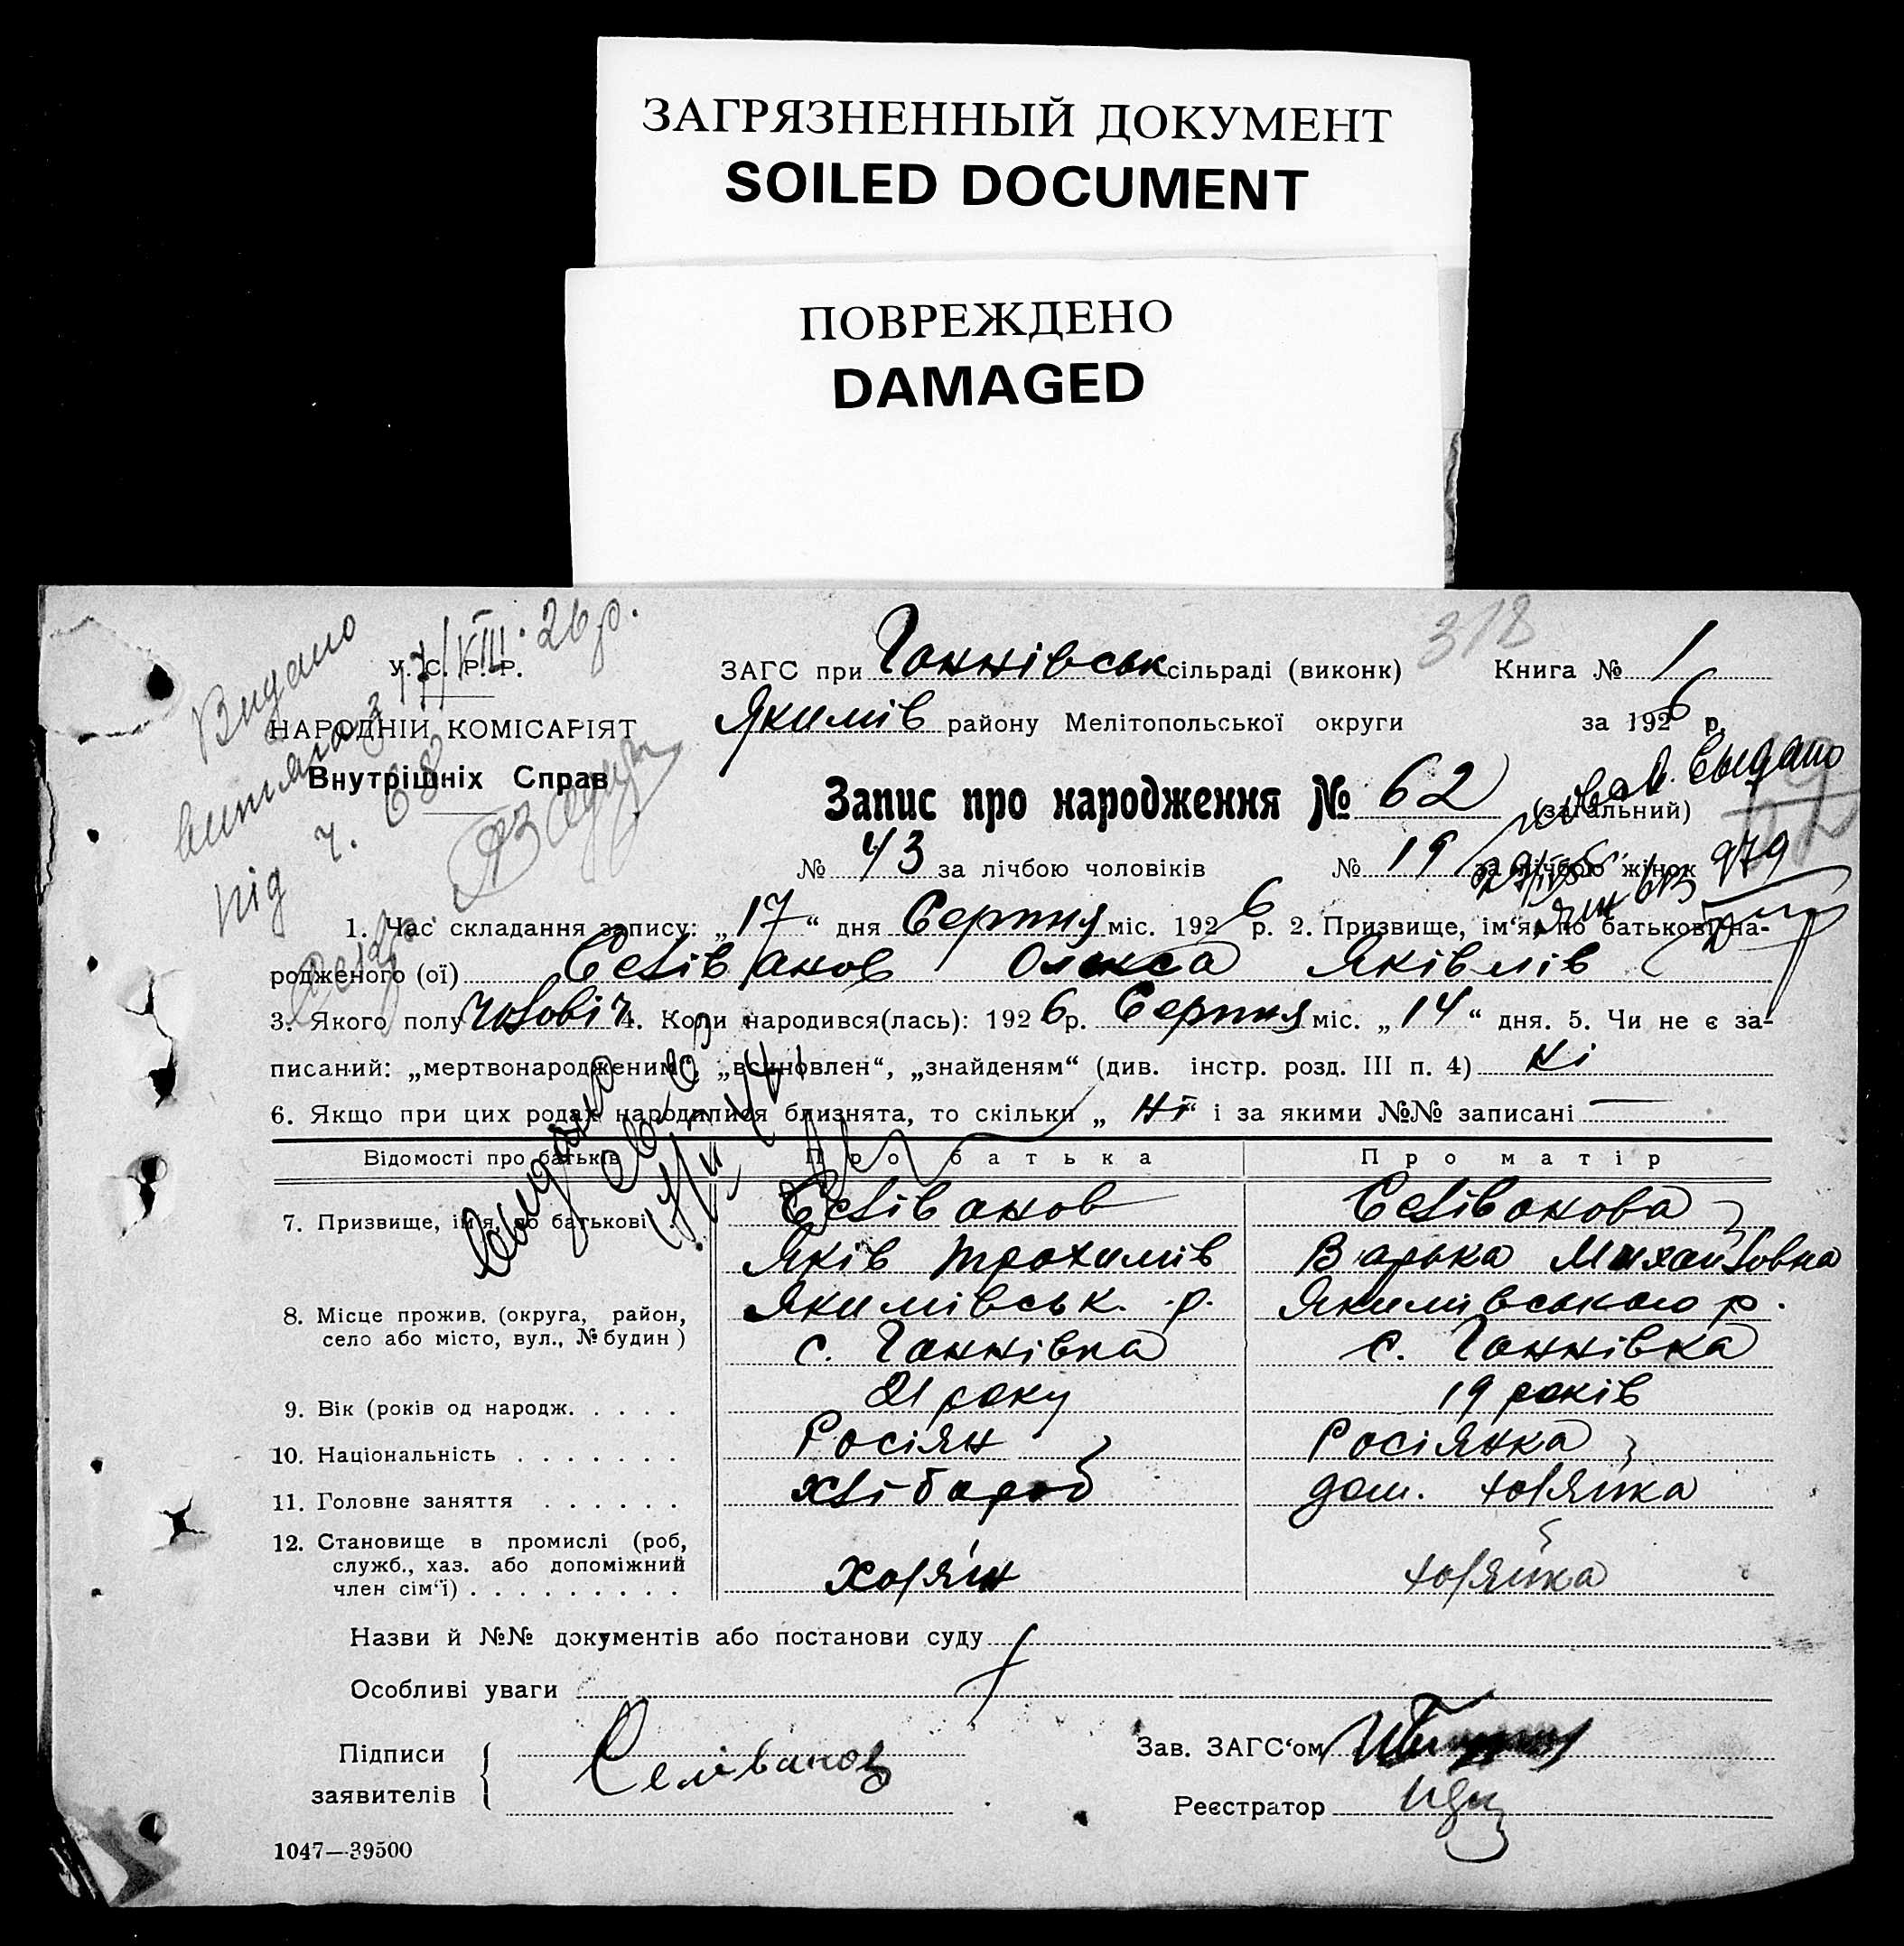 ЗАГРЯЗНЕННЫЙ ДОКУМЕНТ
SOILED DOCUMENT
ПОВРЕЖДЕНО
DAMAGED
Видано
витяга з 17/VIII. 26 р.
під ч. 68
318
У. С. Р. Р.
НАРОДНІЙ КОМІСАРІЯТ
Внутрішніх Справ
ЗАГС при Ганнівськ сільраді (виконк) Книга № 1
Якимів району Мелітопольської округи за 1926 р.
Запис про народження № 62 (загальний)
выдано
№ 43 за лічбою чоловіків № 19 за лічбою жінок
979
1. Час складання запису: „17“ дня Серпня міс. 1926 р. 2. Призвище, ім'я, по батькові на-
родженого (ої) Селіванов Олекса Яківлів
3. Якого полу чоловіч 4. Коли народився(лась): 1926 р. Серпня міс. „14“ дня. 5. Чи не є за-
писаний: „мертвонародженим“, „всиновлен“, „знайденям“ (див. інстр. розд. III п. 4) ні
6. Якщо при цих родах народилися близнята, то скільки „ні“ і за якими №№ записані —
Выдано
Відомості про батьків Про батька Про матір
7. Призвище, ім'я, по батькові . Селіванов Селіванова
Яків Трохимів Варька Михайловна
8. Місце прожив. (округа, район, село або місто, вул., № будин) Якимівськ. р. Якимівського р.
с. Ганнівка с. Ганнівка
9. Вік (років од народж. . . . . 21 року 19 років
10. Національність . . . . . . . Росіян Росіянка
11. Головне заняття . . . . . . хлібороб дом. хозяйка
12. Становище в промислі (роб, служб., хаз. або допоміжний член сім'ї) . . . . . . . . . хозяїн хозяйка
Назви й №№ документів або постанови суду
Особливі уваги
Підписи заявителів Селіванов
Зав. ЗАГС'ом
Реєстратор
1047—39500